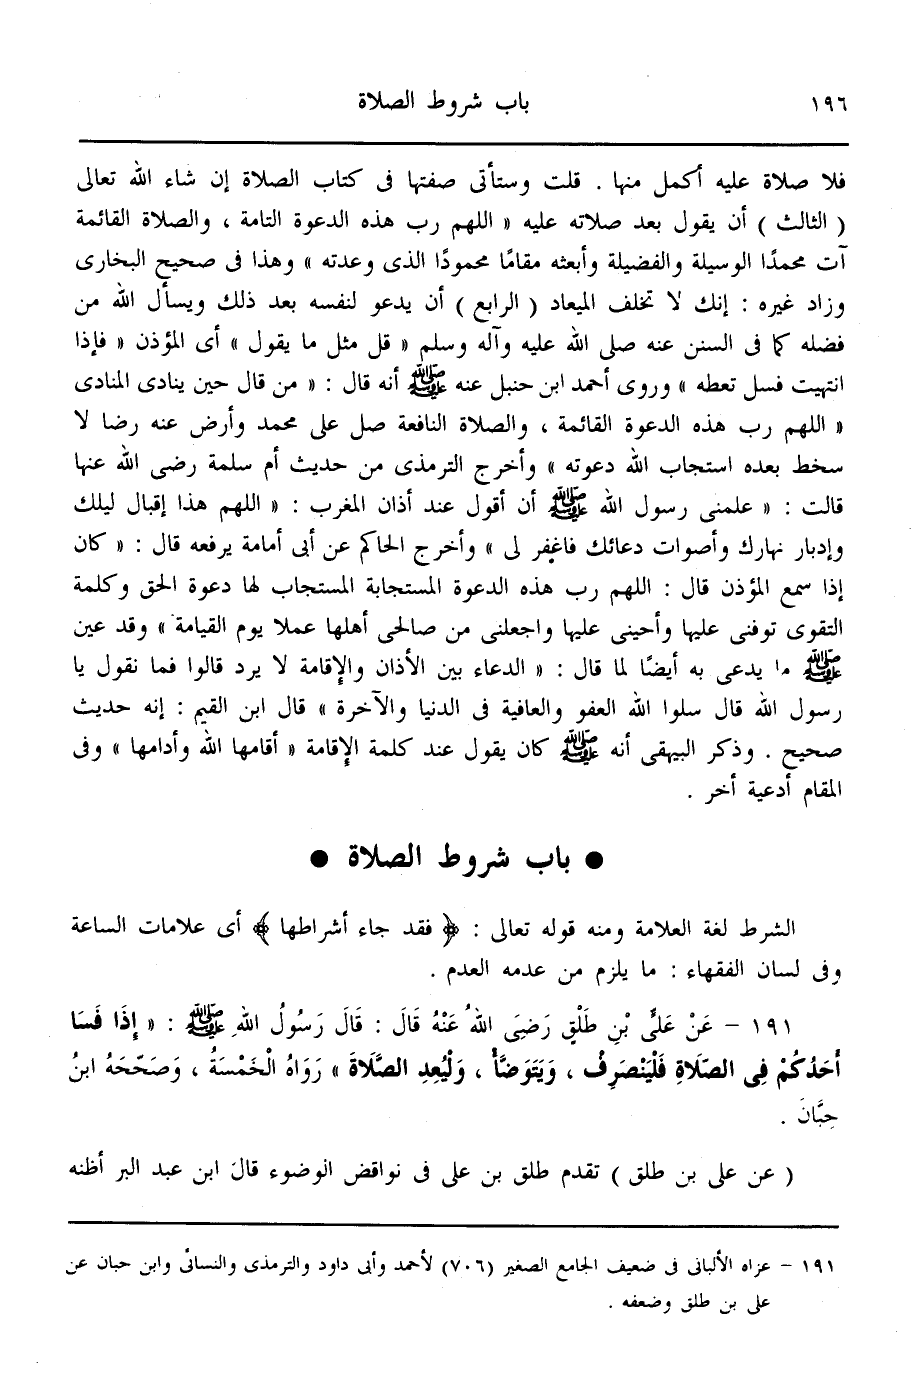 ١٩٦ باب شروط الصلاة
فلا صلاة عليه أكمل منها . قلت وستأتى صفتها فى كتاب الصلاة إن شاء الله تعالى
( الثالث ) أن يقول بعد صلاته عليه « اللهم رب هذه الدعوة التامة ، والصلاة القائمة
آت محمدًا الوسيلة والفضيلة وأبعثه مقامًا محمودًا الذى وعدته » وهذا فى صحيح البخارى
وزاد غيره : إنك لا تخلف الميعاد ( الرابع ) أن يدعو لنفسه بعد ذلك ويسأل الله من
فضله كما فى السنن عنه صلى الله عليه وآله وسلم « قل مثل ما يقول » أى المؤذن « فإذا
انتهيت فسل تعطه » وروى أحمد ابن حنبل عنه ﷺ أنه قال : « من قال حين ينادى المنادى
« اللهم رب هذه الدعوة القائمة ، والصلاة النافعة صل على محمد وأرض عنه رضا لا
سخط بعده استجاب الله دعوته » وأخرج الترمذى من حديث أم سلمة رضى الله عنها
قالت : « علمنى رسول الله ﷺ أن أقول عند أذان المغرب : « اللهم هذا إقبال ليلك
وإدبار نهارك وأصوات دعائك فاغفر لى » وأخرج الحاكم عن أبى أمامة يرفعه قال : « كان
إذا سمع المؤذن قال : اللهم رب هذه الدعوة المستجابة المستجاب لها دعوة الحق وكلمة
التقوى توفنى عليها وأحينى عليها واجعلنى من صالحى أهلها عملا يوم القيامة » وقد عين
ﷺ ما يدعى به أيضًا لما قال : « الدعاء بين الأذان والإقامة لا يرد قالوا فما نقول يا
رسول الله قال سلوا الله العفو والعافية فى الدنيا والآخرة » قال ابن القيم : إنه حديث
صحيح . وذكر البيهقى أنه ﷺ كان يقول عند كلمة الإقامة « أقامها الله وأدامها » وفى
المقام أدعية أخر .
● باب شروط الصلاة ●
الشرط لغة العلامة ومنه قوله تعالى : ﴿ فقد جاء أشراطها ﴾ أى علامات الساعة
وفى لسان الفقهاء : ما يلزم من عدمه العدم .
١٩١ – عَنْ عَلىِّ بْنِ طَلْقٍ رَضِىَ اللهُ عَنْهُ قَالَ : قَالَ رَسُولُ اللهِ ﷺ : « إِذَا فَسَا
أَحَدُكُمْ فِى الصَّلَاةِ فَلْيَنْصَرِفْ ، وَيَتَوَضَّأْ ، وَلْيُعِدِ الصَّلَاةَ » رَوَاهُ الْخَمْسَةُ ، وَصَحَّحَهُ ابنُ
حِبَّانَ .
( عن على بن طلق ) تقدم طلق بن على فى نواقض الوضوء قال ابن عبد البر أظنه
١٩١ – عزاه الألبانى فى ضعيف الجامع الصغير (٧٠٦) لأحمد وأبى داود والترمذى والنسائى وابن حبان عن
على بن طلق وضعفه .